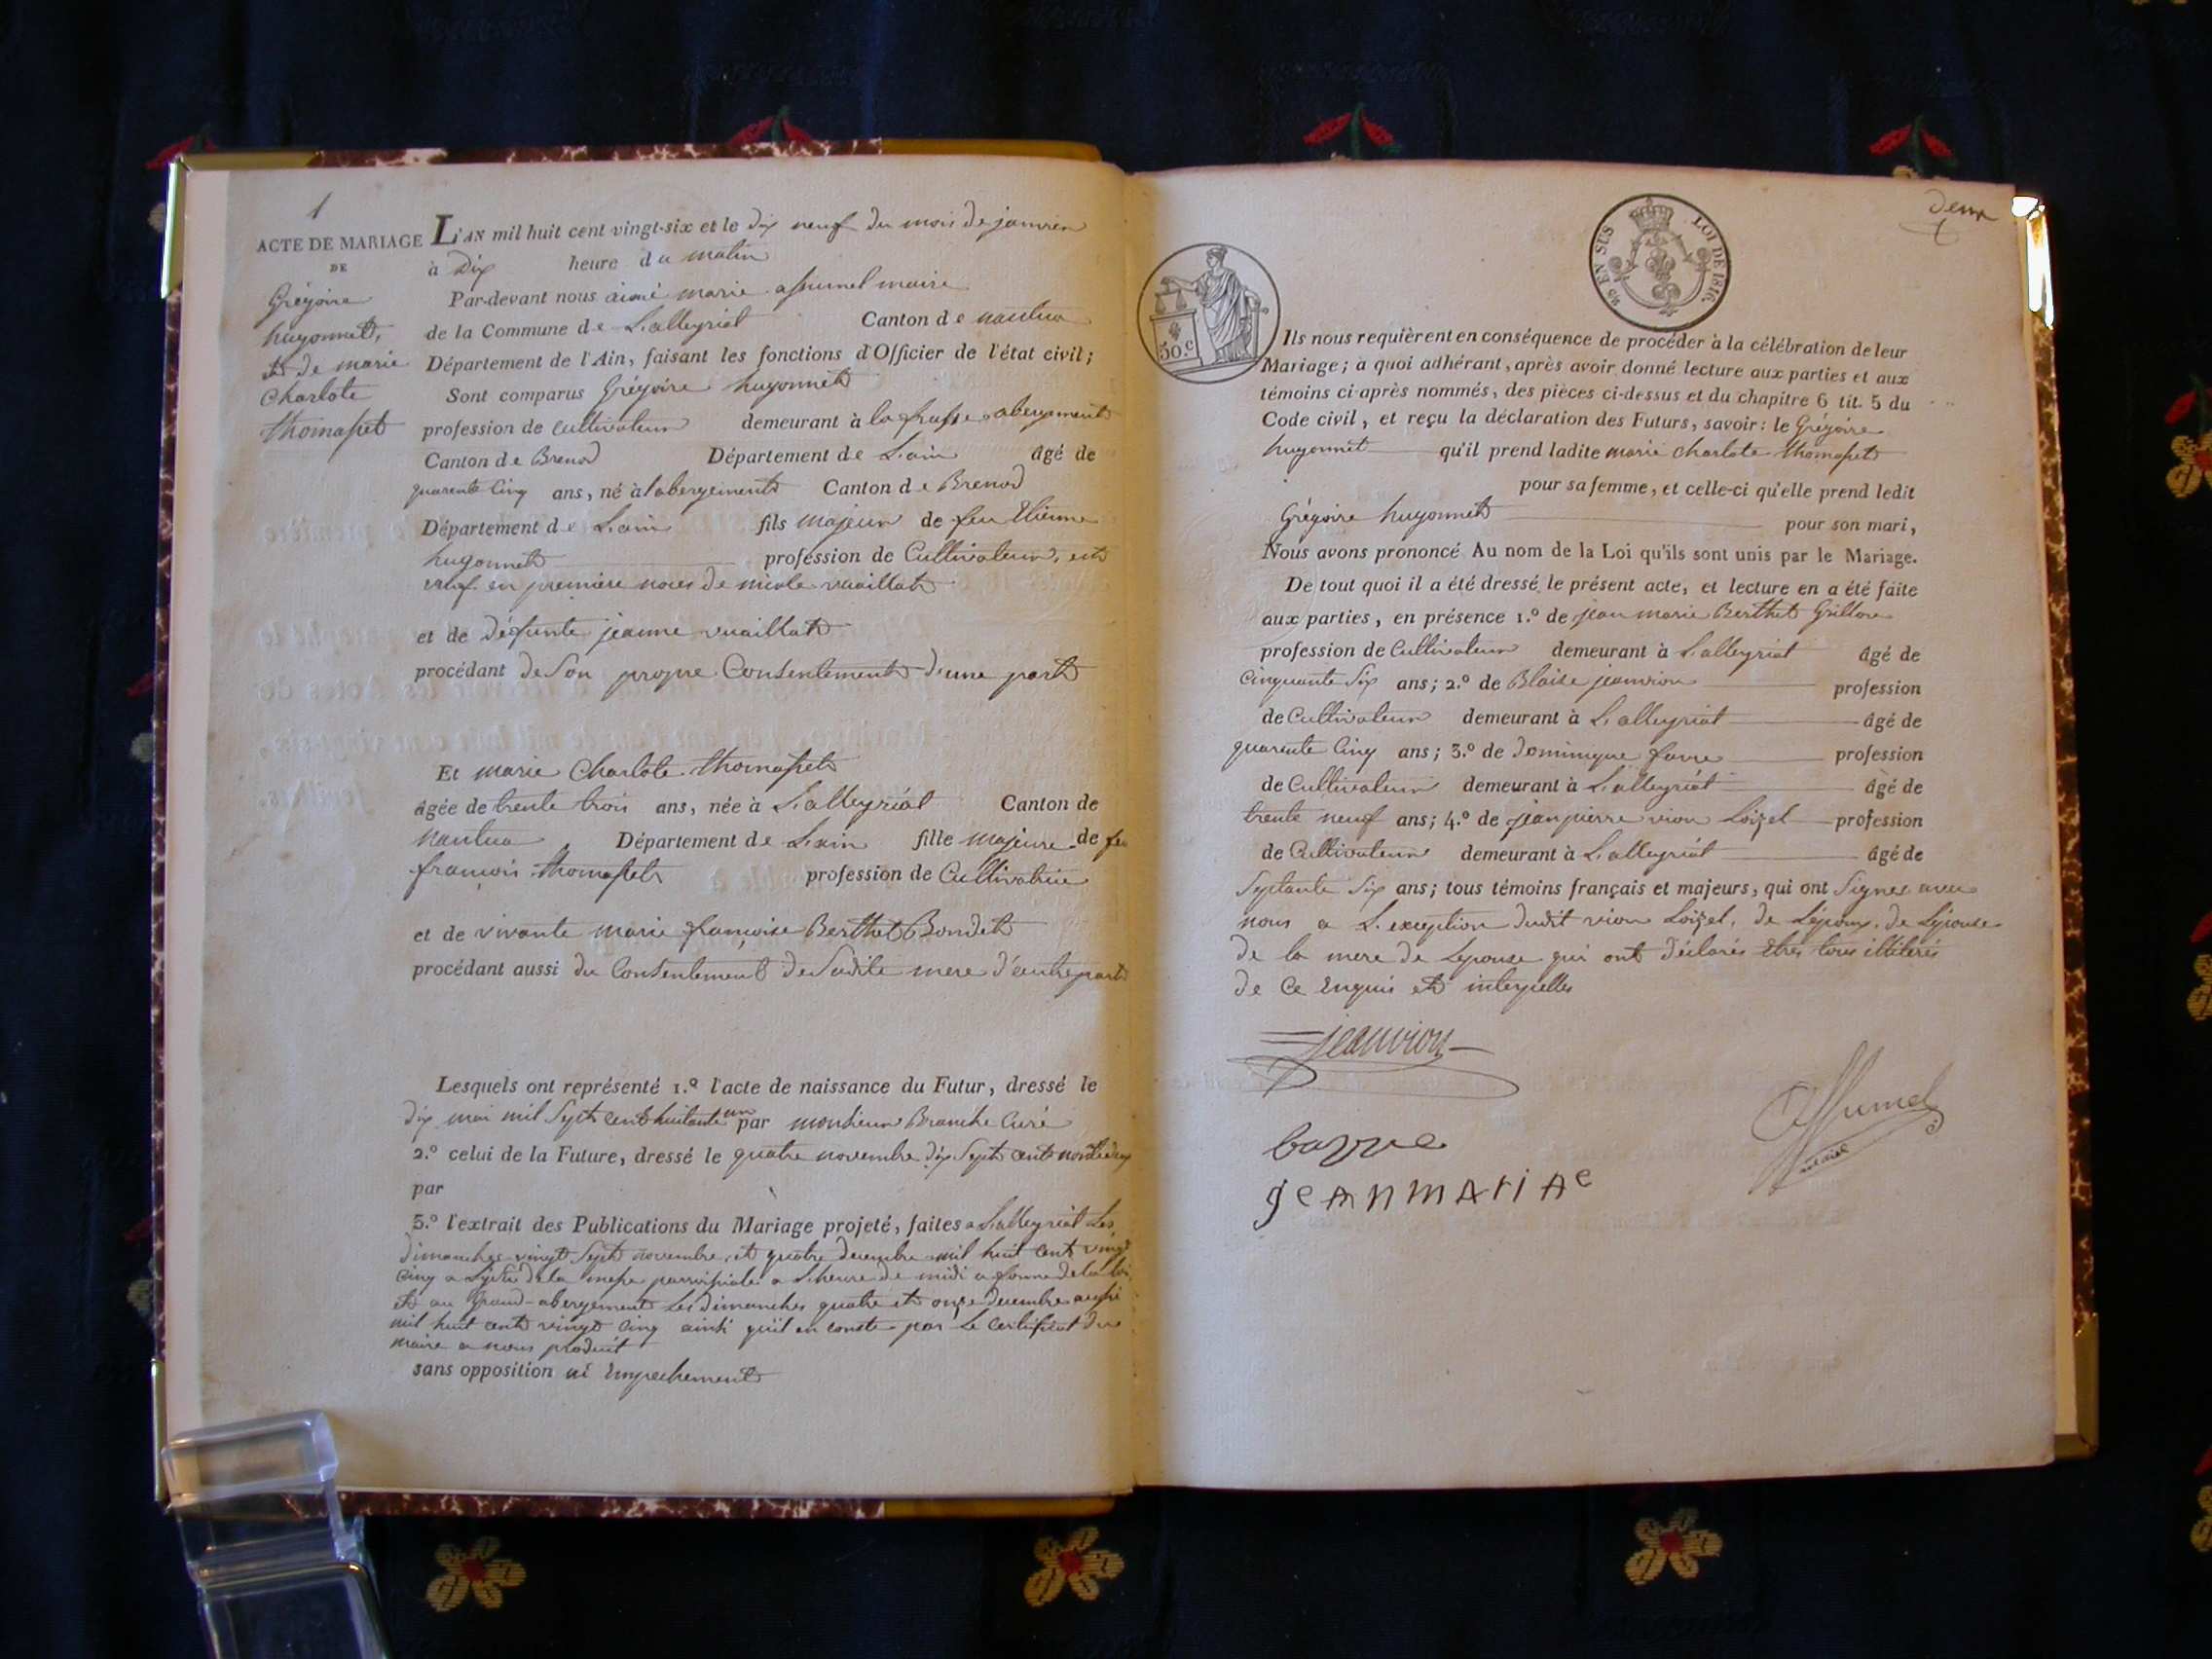 1
ACTE DE MARIAGE
DE
Grégoire
hugonnet,
et de marie
Charlote
thomasset
L'AN mil huit cent vingt-six et le dix neuf du mois de janvier
à Dix heure du matin
Par-devant nous aimé marie assumel maire
de la Commune de Lalleyriat Canton de nantua
Département de l'Ain, faisant les fonctions d'Officier de l'état civil;
Sont comparus Grégoire hugonnet
profession de cultivateur demeurant à abergement
Canton de Brenod Département de L'ain âgé de
quarante Cinq ans, né à labergement Canton de Brenod
Département de L'ain fils majeur de feu Etienne
hugonnet profession de Cultivateur, et
veuf en première noces de nicole vuaillat
et de défunte jeanne vuaillat
procédant de Son propre Consentement d'une part
Et marie Charlote thomasset
âgée de trente trois ans, née à Lalleyriat Canton de
nantua Département de L'ain fille majeure de feu
françois thomasset profession de Cultivatrice
et de vivante marie françoise Berthet Bondet
procédant aussi du Consentement de Sadite mere d'autre part
Lesquels ont représenté 1.º l'acte de naissance du Futur, dressé le
dix mai mil Sept cent huitante un par monsieur Branche Curé
2.º celui de la Future, dressé le quatre novembre dix Sept cent
par
3.º l'extrait des Publications du Mariage projeté, faites a Lalleyriat Les
dimanches vingt Sept novembre et quatre decembre mil huit cent vingt
Cinq a de la messe a L'heure de midi a forme de la loi
et au Grand-abergement Les dimanches quatre et onze decembre aussi
mil huit cent vingt Cinq ainsi qu'il en conste par Le Certificat du
maire a nous produit
sans opposition ni Empechement
deux
50.c
EN SUS LOI DE 1816.
Ils nous requièrent en conséquence de procéder à la célébration de leur
Mariage; à quoi adhérant, après avoir donné lecture aux parties et aux
témoins ci-après nommés, des pièces ci-dessus et du chapitre 6 tit. 5 du
Code civil, et reçu la déclaration des Futurs, savoir: le Grégoire
hugonnet qu'il prend ladite marie charlote thomasset
pour sa femme, et celle-ci qu'elle prend ledit
Grégoire hugonnet pour son mari,
Nous avons prononcé Au nom de la Loi qu'ils sont unis par le Mariage.
De tout quoi il a été dressé le présent acte, et lecture en a été faite
aux parties, en présence 1.º de jean marie Berthet Grillon
profession de Cultivateur demeurant à Lalleyriat âgé de
Cinquante Six ans; 2.º de Blaise jeanvion profession
de Cultivateur demeurant à Lalleyriat âgé de
quarante Cinq ans; 3.º de Dominique favre profession
de Cultivateur demeurant à Lalleyriat âgé de
trente neuf ans; 4.º de jean pierre vion Loizel profession
de Cultivateur demeurant à Lalleyriat âgé de
Septante Six ans; tous témoins français et majeurs, qui ont Signés avec
nous a L'exception dudit vion Loizel, de Lépoux, de Lépouse
de la mere de Lepouse qui ont déclarés Etres tous illiterés
de Ce Enquis et interpellés
jeanvion
Assumel
maire
jeanmariae